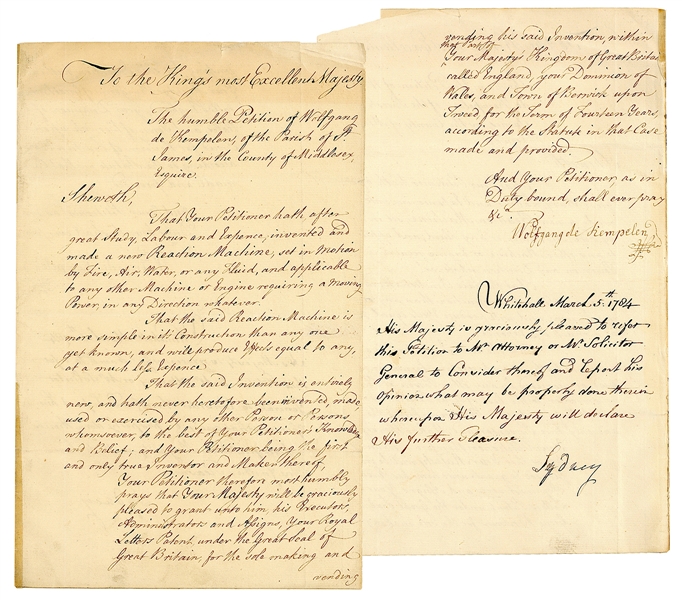 To the King's most Excellent Majesty
The humble Petition of Wolfgang
de Kempelen, of the Parish of St.
James, in the County of Middlesex,
Esquire.
Sheweth,
That Your Petitioner hath after
great Study, Labour and Expence, invented and
made a new Reaction Machine, set in Motion
by Fire, Air, Water, or any Fluid, and applicable
to any other Machine or Engine requiring a Moving
Power, in any Direction whatever.
That the said Reaction Machine is
more simple in its Construction than any one
yet known, and will produce Effects equal to any,
at a much less Expence.
That the said Invention is entirely
new, and hath never heretofore been invented made
used or exercised by any other Person or Persons
whomsoever, to the best of Your Petitioner's Knowledge
and Belief; and Your Petitioner being the first
and only true Inventor and Maker thereof,
Your Petitioner therefore most humbly
prays that Your Majesty will be graciously
pleased to grant unto him, his Executors,
Administrators and Assigns, Your Royal
Letters Patent under the Great Seal of
Great Britain, for the sole making and
vending
vending his said Invention, within
that part of
Your Majesty's Kingdom of Great Britain
called England, your Dominion of
Wales, and Town of Berwick upon
Tweed for the Term of Fourteen Years,
according to the Statute in that Case
made and provided.
And Your Petitioner as in
Duty bound, shall ever pray
&c.
Wolfgang de Kempelen
Whitehall March 5th. 1784
His Majesty is graciously pleased to refer
this Petition to Mr. Attorney or Mr. Solicitor
General to Consider thereof and Report his
Opinion what may be properly done therein
whereupon His Majesty will declare
His further Pleasure.
Sydney